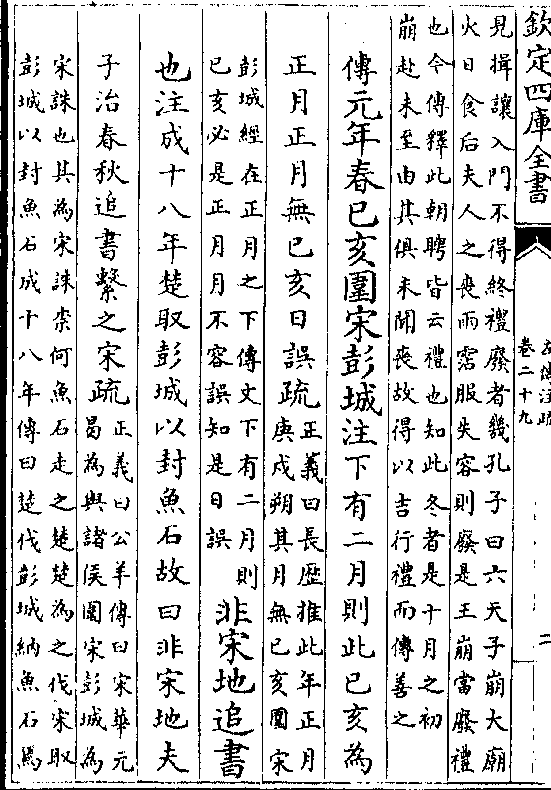 欽定四庫全書
左傳注疏
卷二十九
二
見揖讓入門不得終禮廢者幾孔子曰六天子崩大廟
火日食后夫人之喪雨霑服失容則廢是王崩當廢禮
也今傳釋此朝聘皆云禮也知此冬者是十月之初
崩赴未至由其俱未聞喪故得以吉行禮而傳善之
傳元年春己亥圍宋彭城注下有二月則此己亥為
正月正月無己亥日誤疏
正義曰長歴推此年正月
庚戍朔其月無己亥圍宋
彭城經在正月之下傳文下有二月則
己亥必是正月月不容誤知是日誤
非宋地追書
也注成十八年楚取彭城以封魚石故曰非宋地夫
子治春秋追書繫之宋疏
正義曰公羊傳曰宋華元
曷為與諸侯圍宋彭城為
宋誅也其為宋誅柰何魚石走之楚楚為之伐宋取
彭城以封魚石成十八年傳曰楚伐彭城納魚石焉